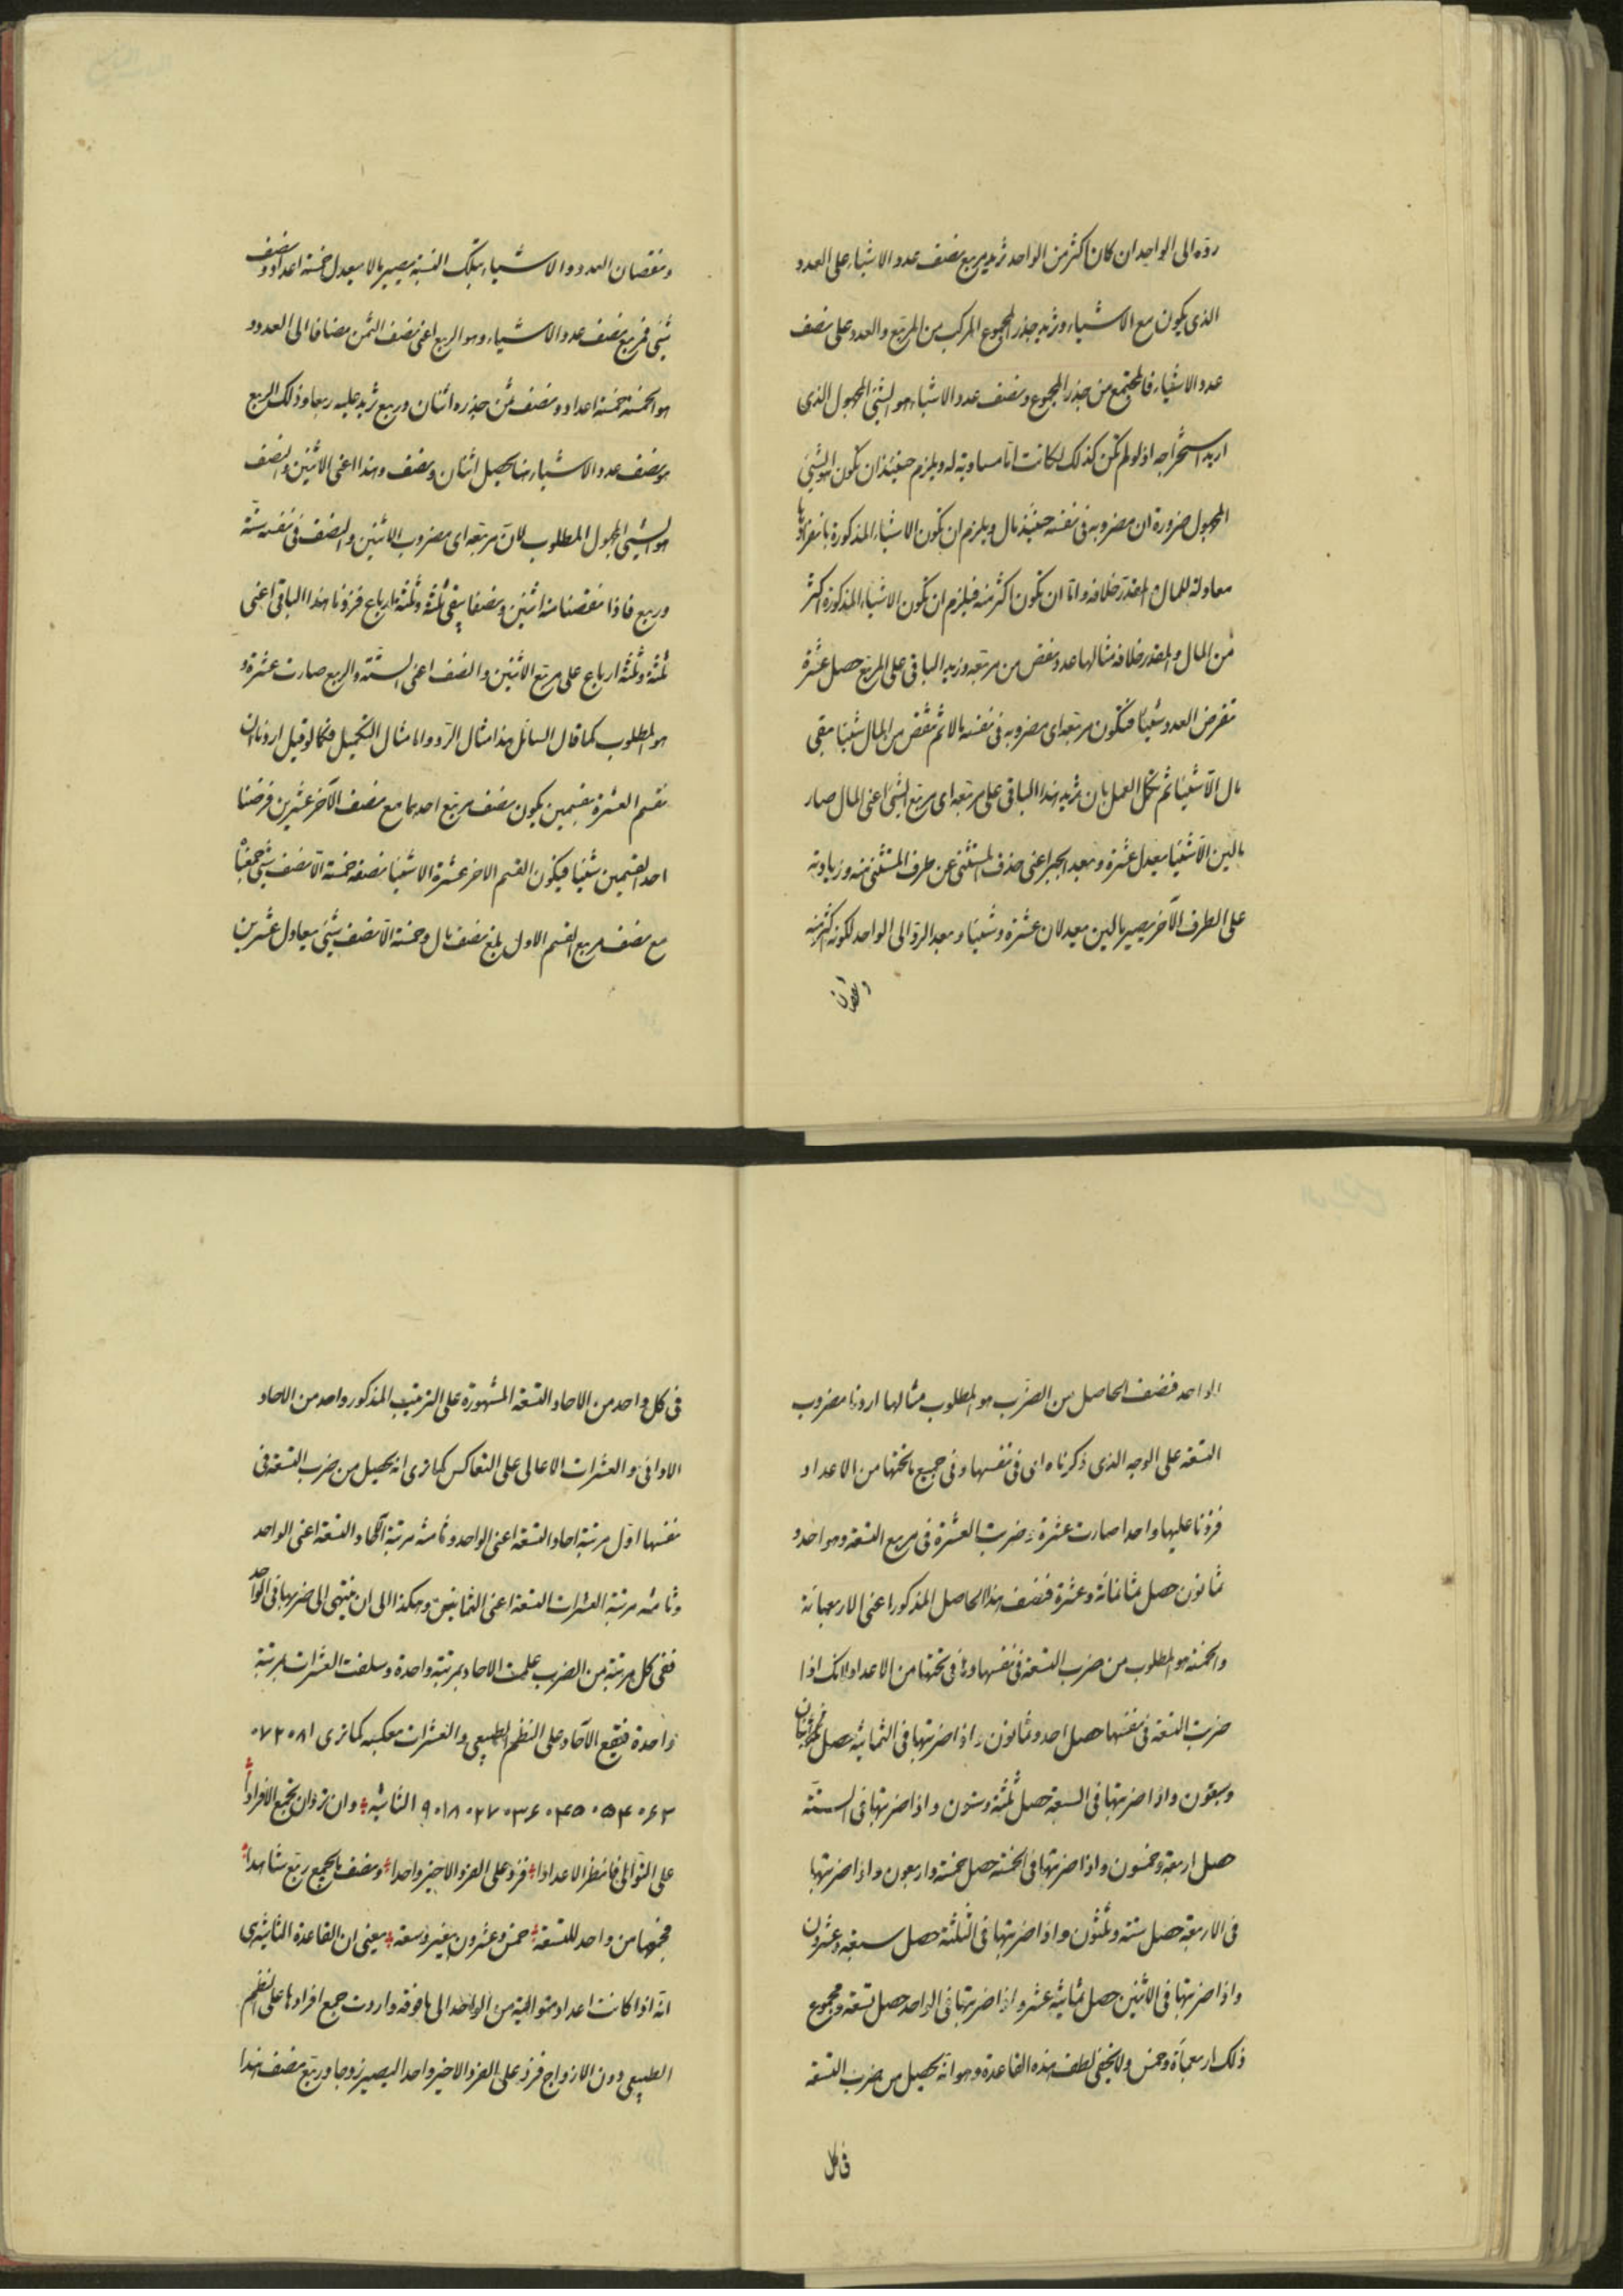 رده الى الواحد ان كان اكثر من الواحد تزيد مربع نصف عدد الاشياء على العدد
الذى يكون مع الاشياء وتزيد جذر المجموع المركب من المربع والعدد على نصف
عدد الاشياء فالمجتمع من جذر المجموع ونصف عدد الاشياء هو الشئ المجهول الذى
اريد استخراجه اذ لو لم تكن كذلك لكانت اما مساوية له ويلزم حينئذ ان تكون هو الشئ
المجهول ضرورة ان مضروبه فى نفسه حينئذ مال ويلزم ان يكون الاشياء المذكورة بانفرادها
معادلة للمال والمقدر خلافه واما ان تكون اكثر منه فيلزم ان يكون الاشياء المذكورة اكثر
من المال والمقدر خلافه مثالها عدد نقص من مربعه وزيد الباقى على المربع حصل عشرة
نفرض العدد شيئا فيكون مربعه اى مضروبه فى نفسه مالا ثم نقص من المال شيئا يبقى
مال الا شيئا ثم نكمل العمل بان نزيد هذا الباقى على مربعه اى مربع الشئ اعنى المال صار
مالين الا شيئا يعدل عشرة وبعد الجبر اعنى حذف المستثنى عن طرف المستثنى منه وزيادته
على الطرف الآخر يصير مالين يعدلان عشرة وشيئا وبعد الرد الى الواحد لكونه اكثر منه
ونقصان
ونقصان العدد والاشياء بتلك النسبة يصير مالا يعدل خمسة اعداد ونصف
شئ فمربع نصف عدد الاشياء وهو الربع اعنى نصف الثمن مضافا الى العدد و
هو الخمسة خمسة اعداد ونصف ثمن جذره اثنان وربع نزيد عليه ربعا وذلك الربع
هو نصف عدد الاشياء هنا يحصل اثنان ونصف وهذا اعنى الاثنين والنصف
هو الشئ المجهول المطلوب لان مربعه اى مضروب الاثنين والنصف فى نفسه ستة
وربع فاذا نقصنا منه اثنين ونصفا يبقى ثلثة وثلثة ارباع فزدنا هذا الباقى اعنى
ثلثة وثلثة ارباع على مربع الاثنين والنصف اعنى الستة والربع صارت عشرة و
هو المطلوب كما قال السائل هذا مثال الرد واما مثال التكميل فكما لو قيل اردنا ان
نقسم العشرة بقسمين يكون نصف مربع احدهما مع نصف الآخر عشرين فرضنا
احد القسمين شيئا فيكون القسم الاخر عشرة الا شيئا نصفه خمسة الا نصف شئ جمعناه
مع نصف مربع القسم الاول بلغ نصف مال وخمسة الا نصف شئ يعادل عشرين
الواحد فنصف الحاصل من الضرب هو المطلوب مثالها اردنا مضروب
التسعة على الوجه الذى ذكرناه اى فى نفسها وفى جميع ما تحتها من الاعداد
فزدنا عليها واحدا صارت عشرة وضربت العشرة فى مربع التسعة وهو احد و
ثمانون حصل ثمانمائة وعشرة فنصف هذا الحاصل المذكور اعنى الاربعمائة
والخمسة هو المطلوب من ضرب التسعة فى نفسها وفيما تحتها من الاعداد لانك اذا
ضربت التسعة فى نفسها حصل احد وثمانون واذا ضربتها فى الثمانية حصل اثنان
وسبعون واذا ضربتها فى السبعة حصل ثلثة وستون واذا ضربتها فى الستة
حصل اربعة وخمسون واذا ضربتها فى الخمسة حصل خمسة واربعون واذا ضربتها
فى الاربعة حصل ستة وثلثون واذا ضربتها فى الثلثة حصل سبعة وعشرون
واذا ضربتها فى الاثنين حصل ثمانية عشر واذا ضربتها فى الواحد حصل تسعة ومجموع
ذلك اربعمأة وخمس ولا يخفى لطف هذه القاعدة وهو انه يحصل من ضرب التسعة
فى كل
فى كل واحد من الاحاد التسعة المشهورة على الترتيب المذكور واحد من الاحاد
الادانى والعشرات الاعالى على التعاكس كما ترى انه يحصل من ضرب التسعة فى
نفسها اول مرتبة احاد التسعة اعنى الواحد وثامنه مرتبة الآحاد التسعة اعنى الواحد
وثامنه مرتبة العشرات التسعة اعنى الثمانين وهكذا الى ان ينتهى الى ضربها فى الواحد
ففى كل مرتبة من الضرب علت الاحاد بمرتبة واحدة وسلفت العشرات بمرتبة
واحدة فيقع الآحاد على النظم الطبيعى والعشرات معكسه كما ترى ٨١ ٠ ٧٢ ٠
٦٣ ٠ ٥٤ ٠ ٤٥ ٠ ٣٦ ٠ ٢٧ ٠ ١٨ ٠ ٩ الثانية وان ترد ان تجمع الافرادا
على التوالى فانظر الاعدادا فزد على الفرد الاخير واحدا ونصف ما يجمع ربع شاهدا
فجمعها من واحد للتسعة خمس وعشرون بغير وسعة يعنى ان القاعدة الثانية هى
انه اذا كانت اعداد متوالية من الواحد الى ما فوقه واردت جمع افرادها على النظم
الطبيعى دون الازواج فزد على الفرد الاخير واحدا ليصير زوجا وربع نصف هذا